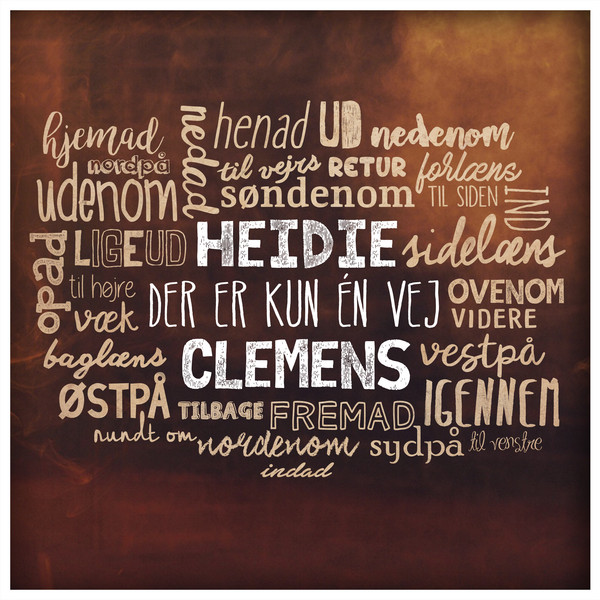 hjemad
nedad
henad
UD
nedenom
nordpå
til vejrs
RETUR
forlæns
udenom
søndenom
TIL SIDEN
IND
opad
LIGEUD
HEIDIE
sidelæns
til højre
væk
DER ER KUN ÉN VEJ
OVENOM
VIDERE
baglæns
CLEMENS
vestpå
ØSTPÅ
TILBAGE
FREMAD
IGENNEM
rundt om
nordenom
sydpå
til venstre
indad